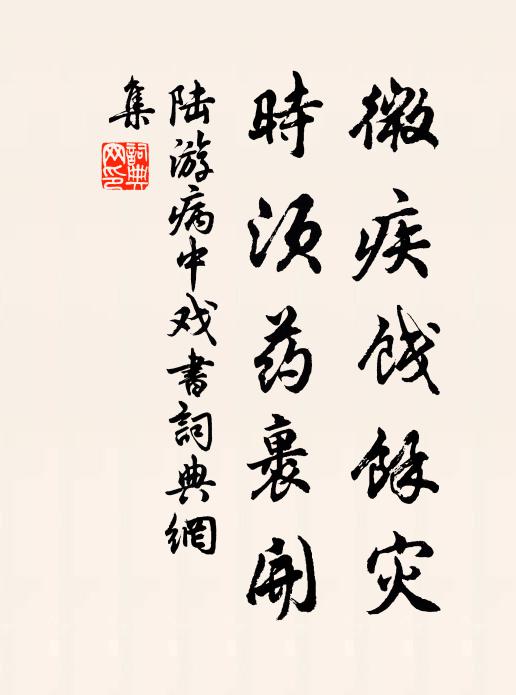 微疾饯馀灾
时须药裹开
陆游病中戏书詞典網
集
詞典網印